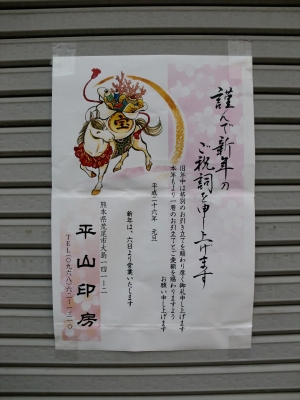 謹んで新年の
ご祝詞を申し上げます
旧年中は格別のお引き立てを賜わり厚く御礼申し上げます
本年もより一層のお引立てとご愛顧を賜わりますよう
お願い申し上げます
平成二十六年 元旦
新年は、六日より営業いたします
熊本県荒尾市大島一四一ー二
平山印房
宝